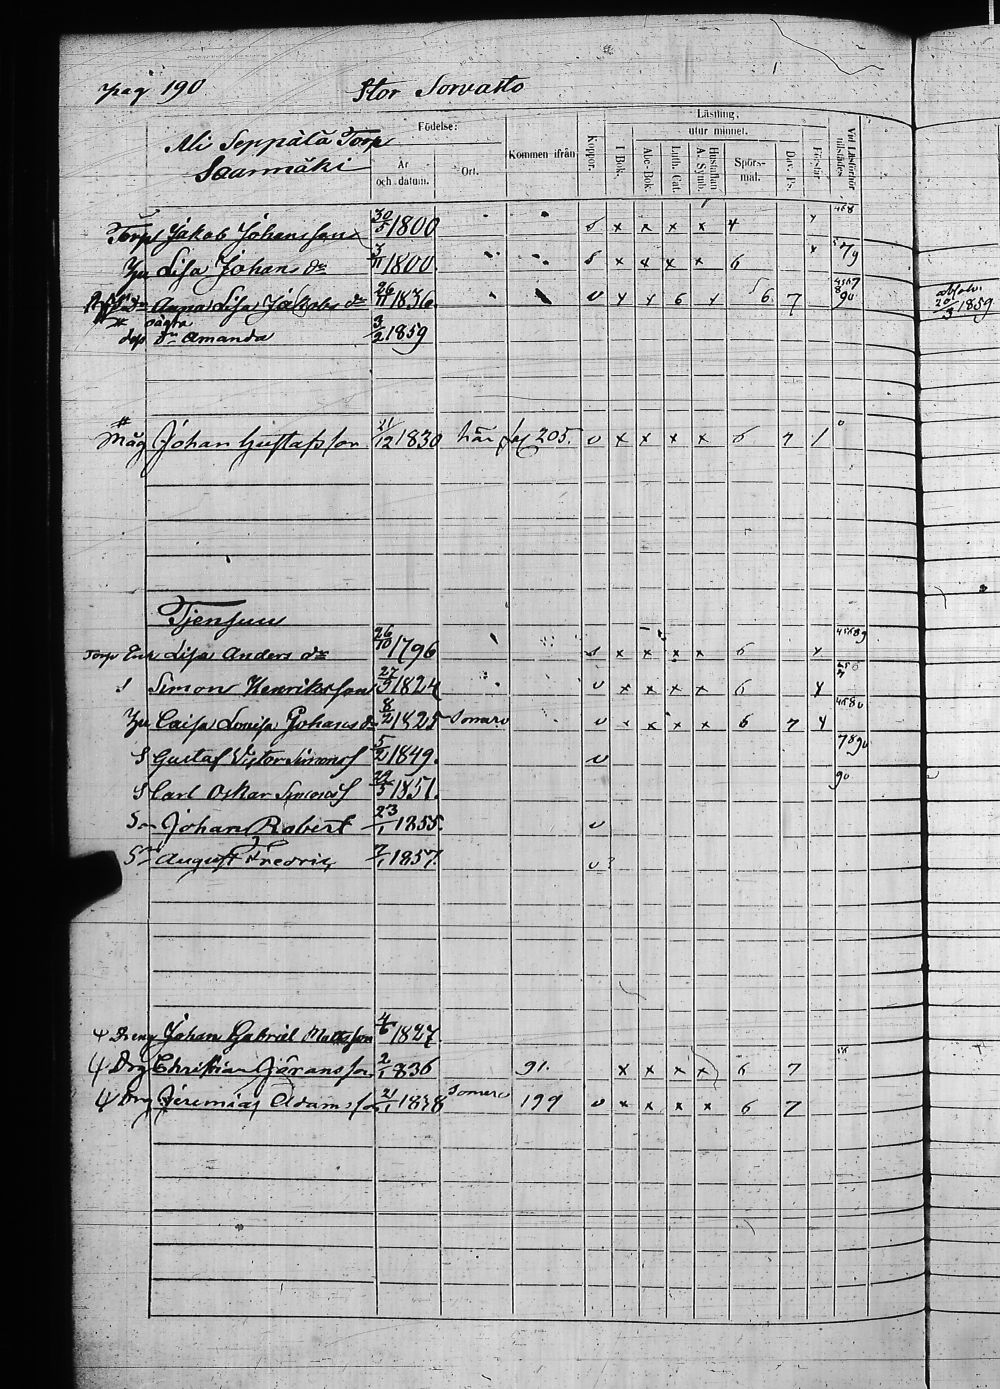 pag 190 Stor Sorvasto
Ali Seppälä Torp
Saarmäki
Födelse:
År och datum.
Ort.
Kommen ifrån
Koppor.
Läsning,
utur minnet.
I Bok.
Abc-Bok.
Luth. Cat.
Hustaflan A. Symb.
Spörsmål.
Dav. Ps.
Förstår
Vid Läsförhör
Torp Jakob Johansson 30/5 1800 s x x x x 4 x
Hu Lisa Johans dr 3/11 1800. s x x x x 6 x 79
Dr Anna Lisa Jakobs dr 26/11 1836. v 6 6. 7 absolv. 20/3 1859
oägta
des dr Amanda 3/2 1859
# Måg Johan Gustafsson 21/12 1830 här 205. v x x x x 6 7 /
Tjensten
Torp Enk Lisa Anders dr 26/10 1796 s x x x x 6
Simon Henriksson 27/9 1824 v x x x x 6
Hu Caisa Lovisa Johans dr 8/2 1825 Somero v x x x x 6 7
S Gustaf Victor Simonss 5/2 1849. v
S Carl Oskar Simonss 22/5 1851. 90
Sn Johan Robert 23/1 1855. v
Sn August Fredric 7/1 1857. v?
Dreng Johan Gabriel Mattsson 4/6 1827
Drg Christian Göransson 2/1 1836 91. x x x x 6 7
Drg Jeremias Adamsson 21/1 1838 Somero 199 v x x x x 6 7